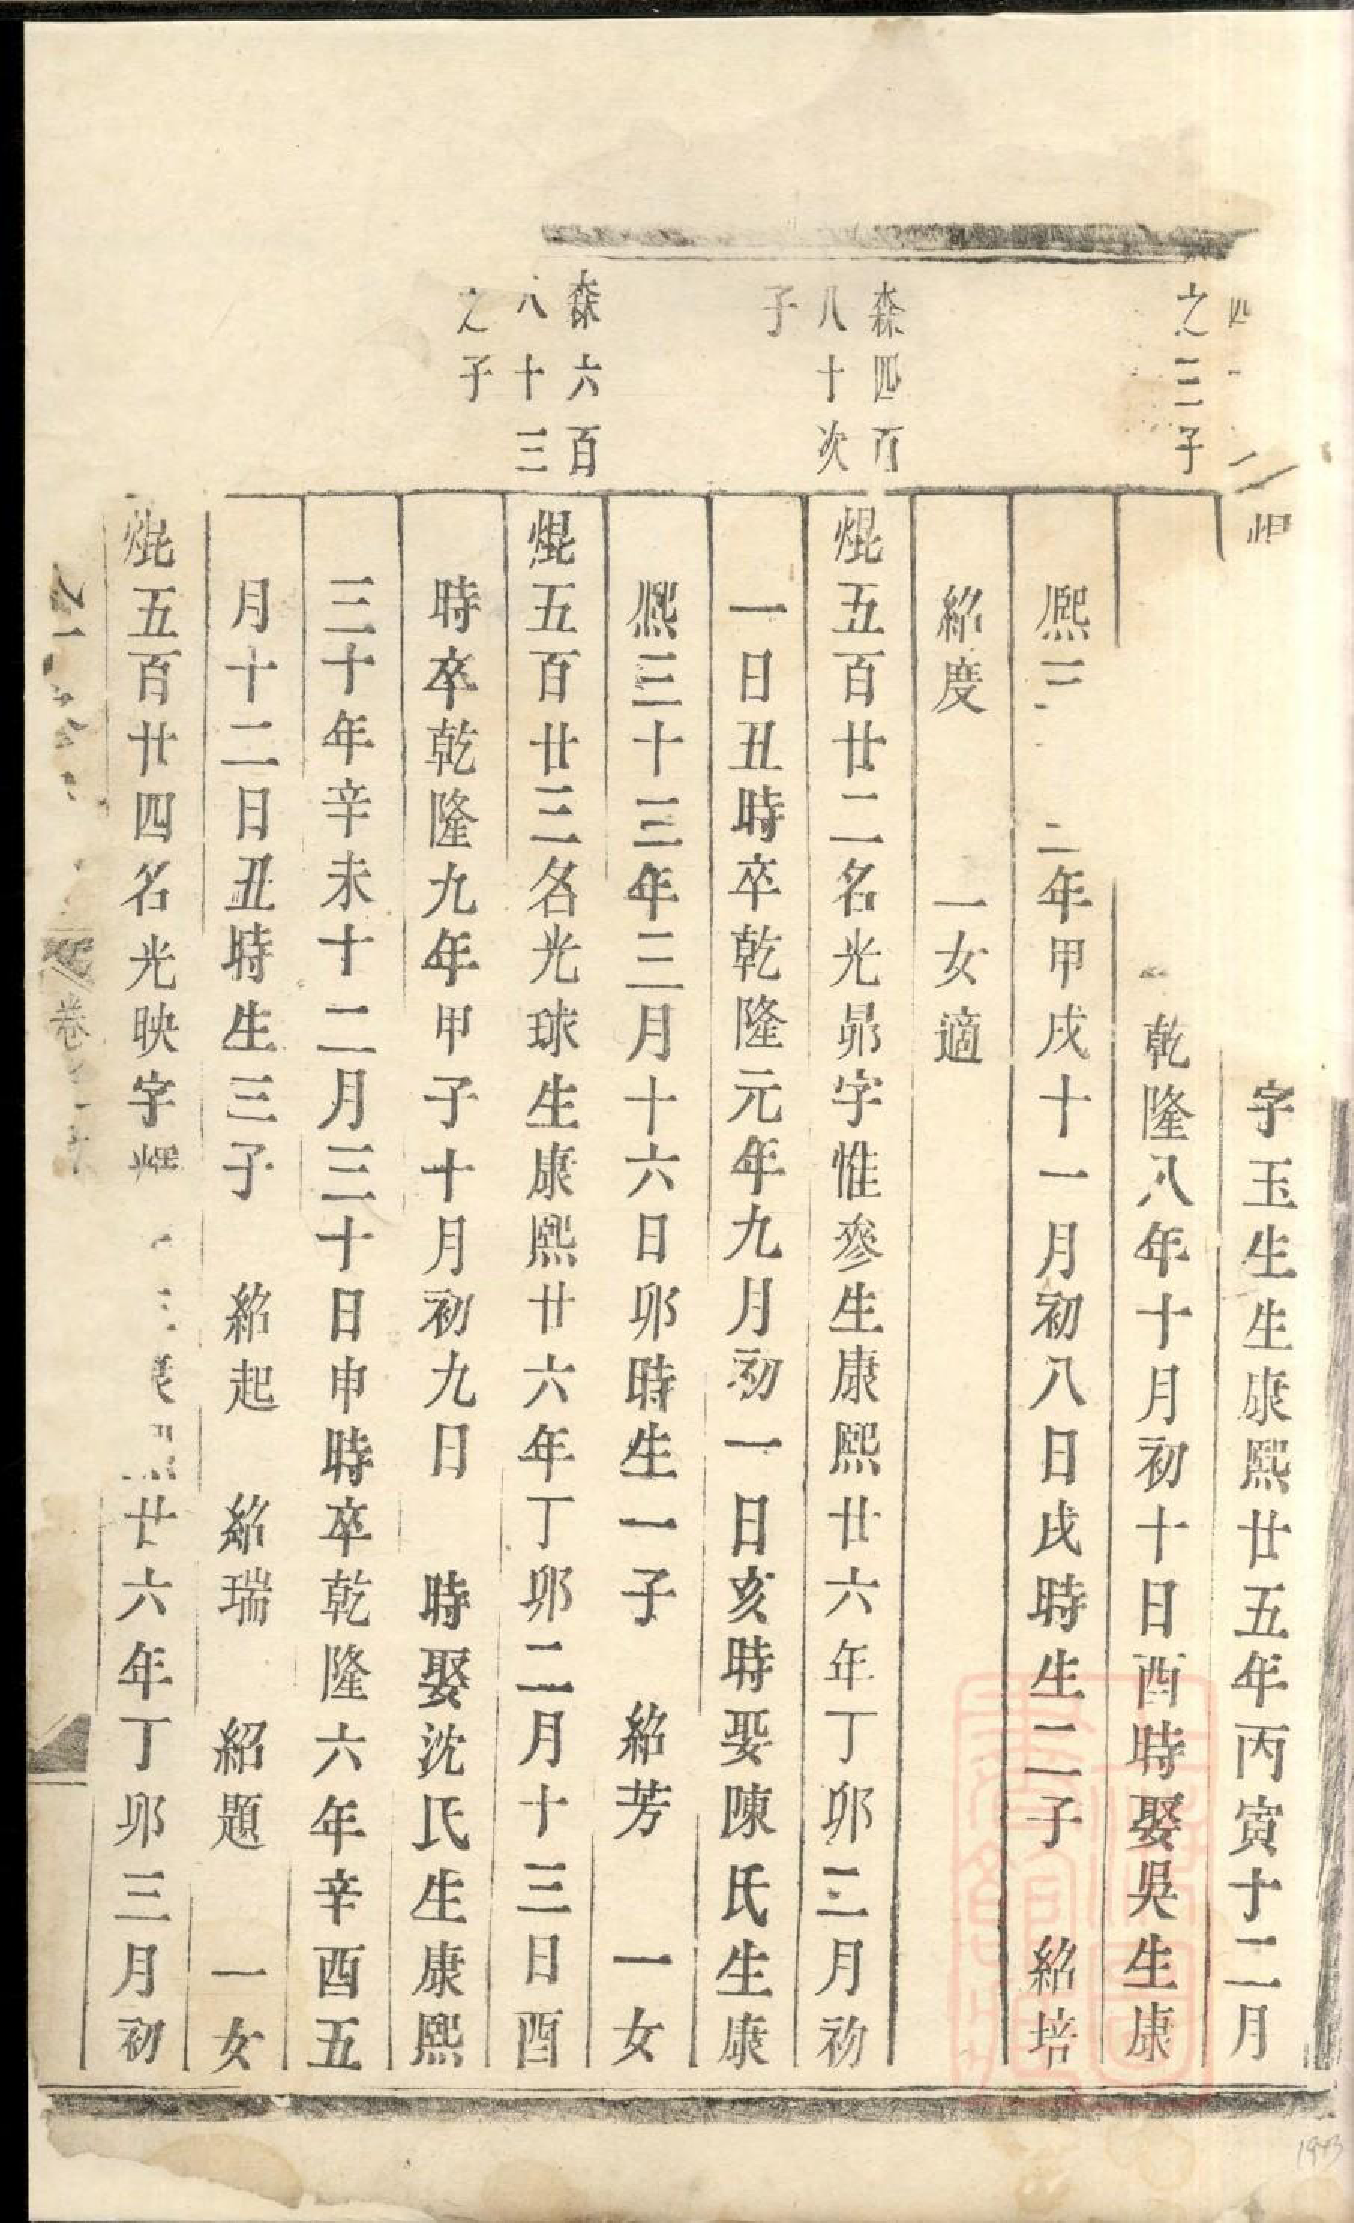 之三子
字玉生生康熙廿五年丙寅十二月
乾隆八年十月初十日酉時娶吳生康
熙三 二年甲戌十一月初八日戌時生二子 紹培
紹度 一女適
森四百
八十次
子
焜五百廿二名光昴字惟參生康熙廿六年丁卯三月初
一日丑時卒乾隆元年九月初一日亥時娶陳氏生康
熙三十三年三月十六日卯時生一子 紹芳 一女
森六百
八十三
之子
焜五百廿三名光球生康熙廿六年丁卯二月十三日酉
時卒乾隆九年甲子十月初九日 時娶沈氏生康熙
三十年辛未十二月三十日申時卒乾隆六年辛酉五
月十二日丑時生三子 紹起 紹瑞 紹題 一女
焜五百廿四名光映字 廿六年丁卯三月初
卷
1943